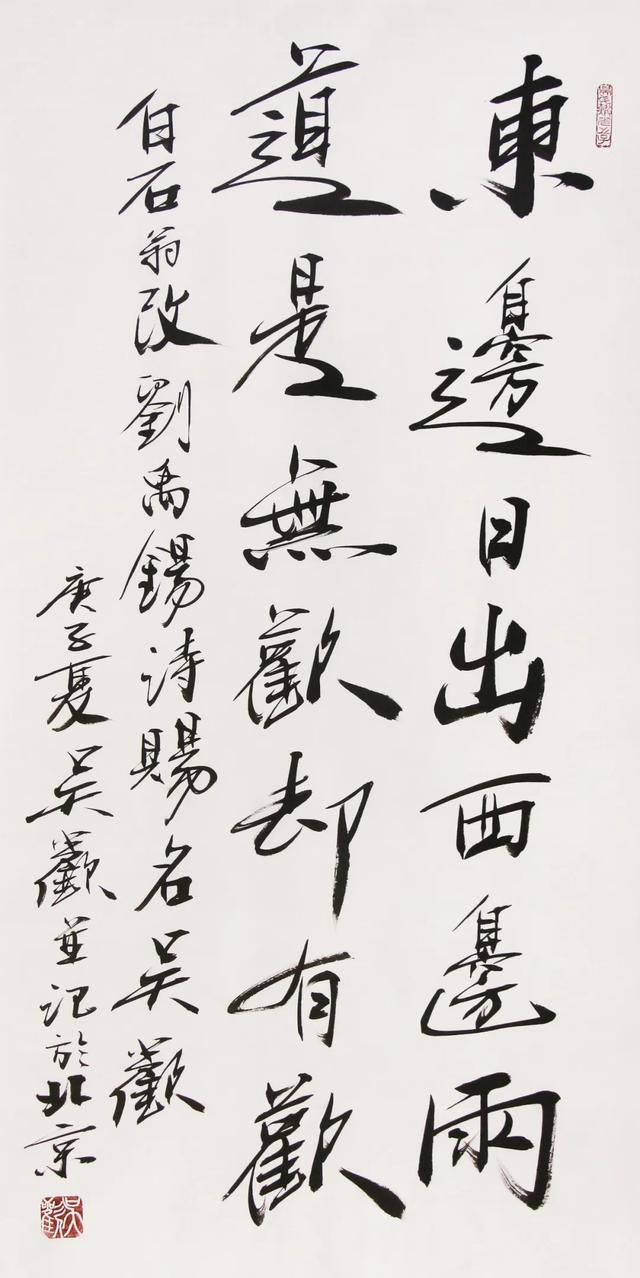 東邊日出西邊雨
道是無歡却有歡
白石翁改劉禹錫詩賜名吳歡
庚子夏吳歡並記於北京
吳歡